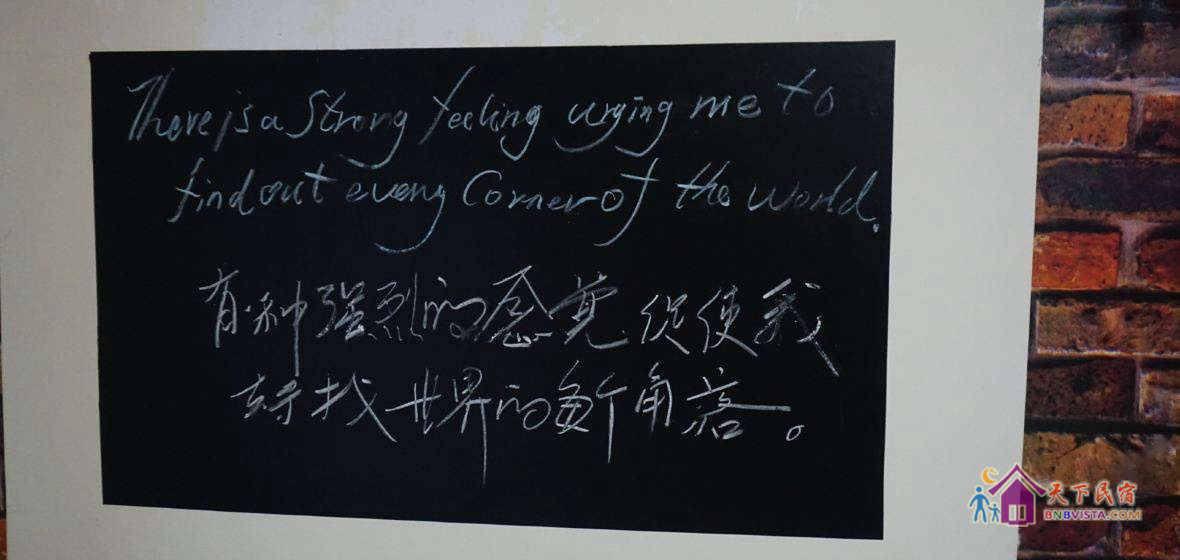 There is a Strong feeling urging me to
find out every Corner of the world.
有种强烈的感觉促使我
去寻找世界的每个角落。
天下民宿
BNBVISTA.COM